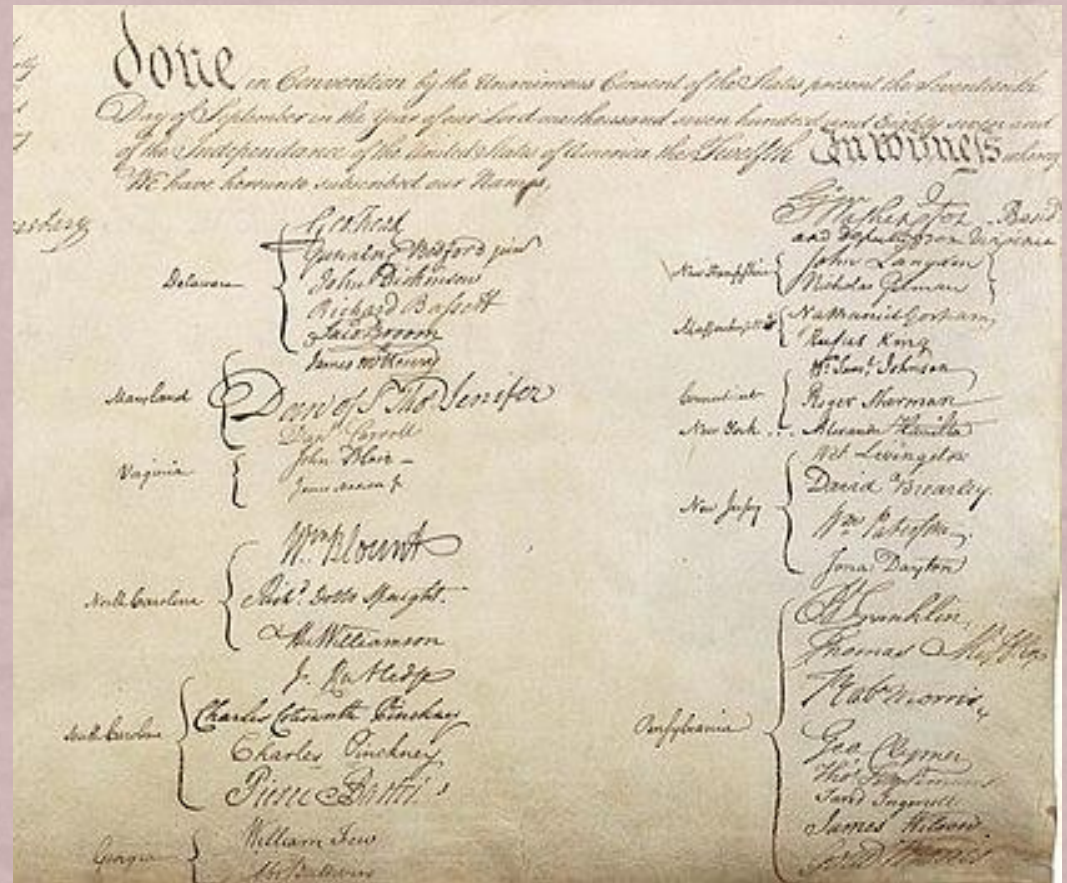 done in Convention by the Unanimous Consent of the States present the Seventeenth
Day of September in the Year of our Lord one thousand seven hundred and Eighty seven and
of the Independance of the United States of America the Twelfth In Witness whereof
We have hereunto subscribed our Names,
Delaware
Geo: Read
Gunning Bedford jun
John Dickinson
Richard Bassett
Jaco: Broom
Maryland
James McHenry
Dan of St Thos Jenifer
Danl Carroll
Virginia
John Blair –
James Madison Jr
North Carolina
Wm Blount
Richd Dobbs Spaight.
Hu Williamson
South Carolina
J. Rutledge
Charles Cotesworth Pinckney
Charles Pinckney
Pierce Butler
Georgia
William Few
Abr Baldwin
Go Washington – Presidt
and deputy from Virginia
New Hampshire
John Langdon
Nicholas Gilman
Massachusetts
Nathaniel Gorham
Rufus King
Connecticut
Wm Saml Johnson
Roger Sherman
New York . . .
Alexander Hamilton
New Jersey
Wil: Livingston
David Brearley.
Wm Paterson.
Jona: Dayton
Pensylvania
B Franklin
Thomas Mifflin
Robt Morris
Geo. Clymer
Thos FitzSimons
Jared Ingersoll
James Wilson.
Gouv Morris